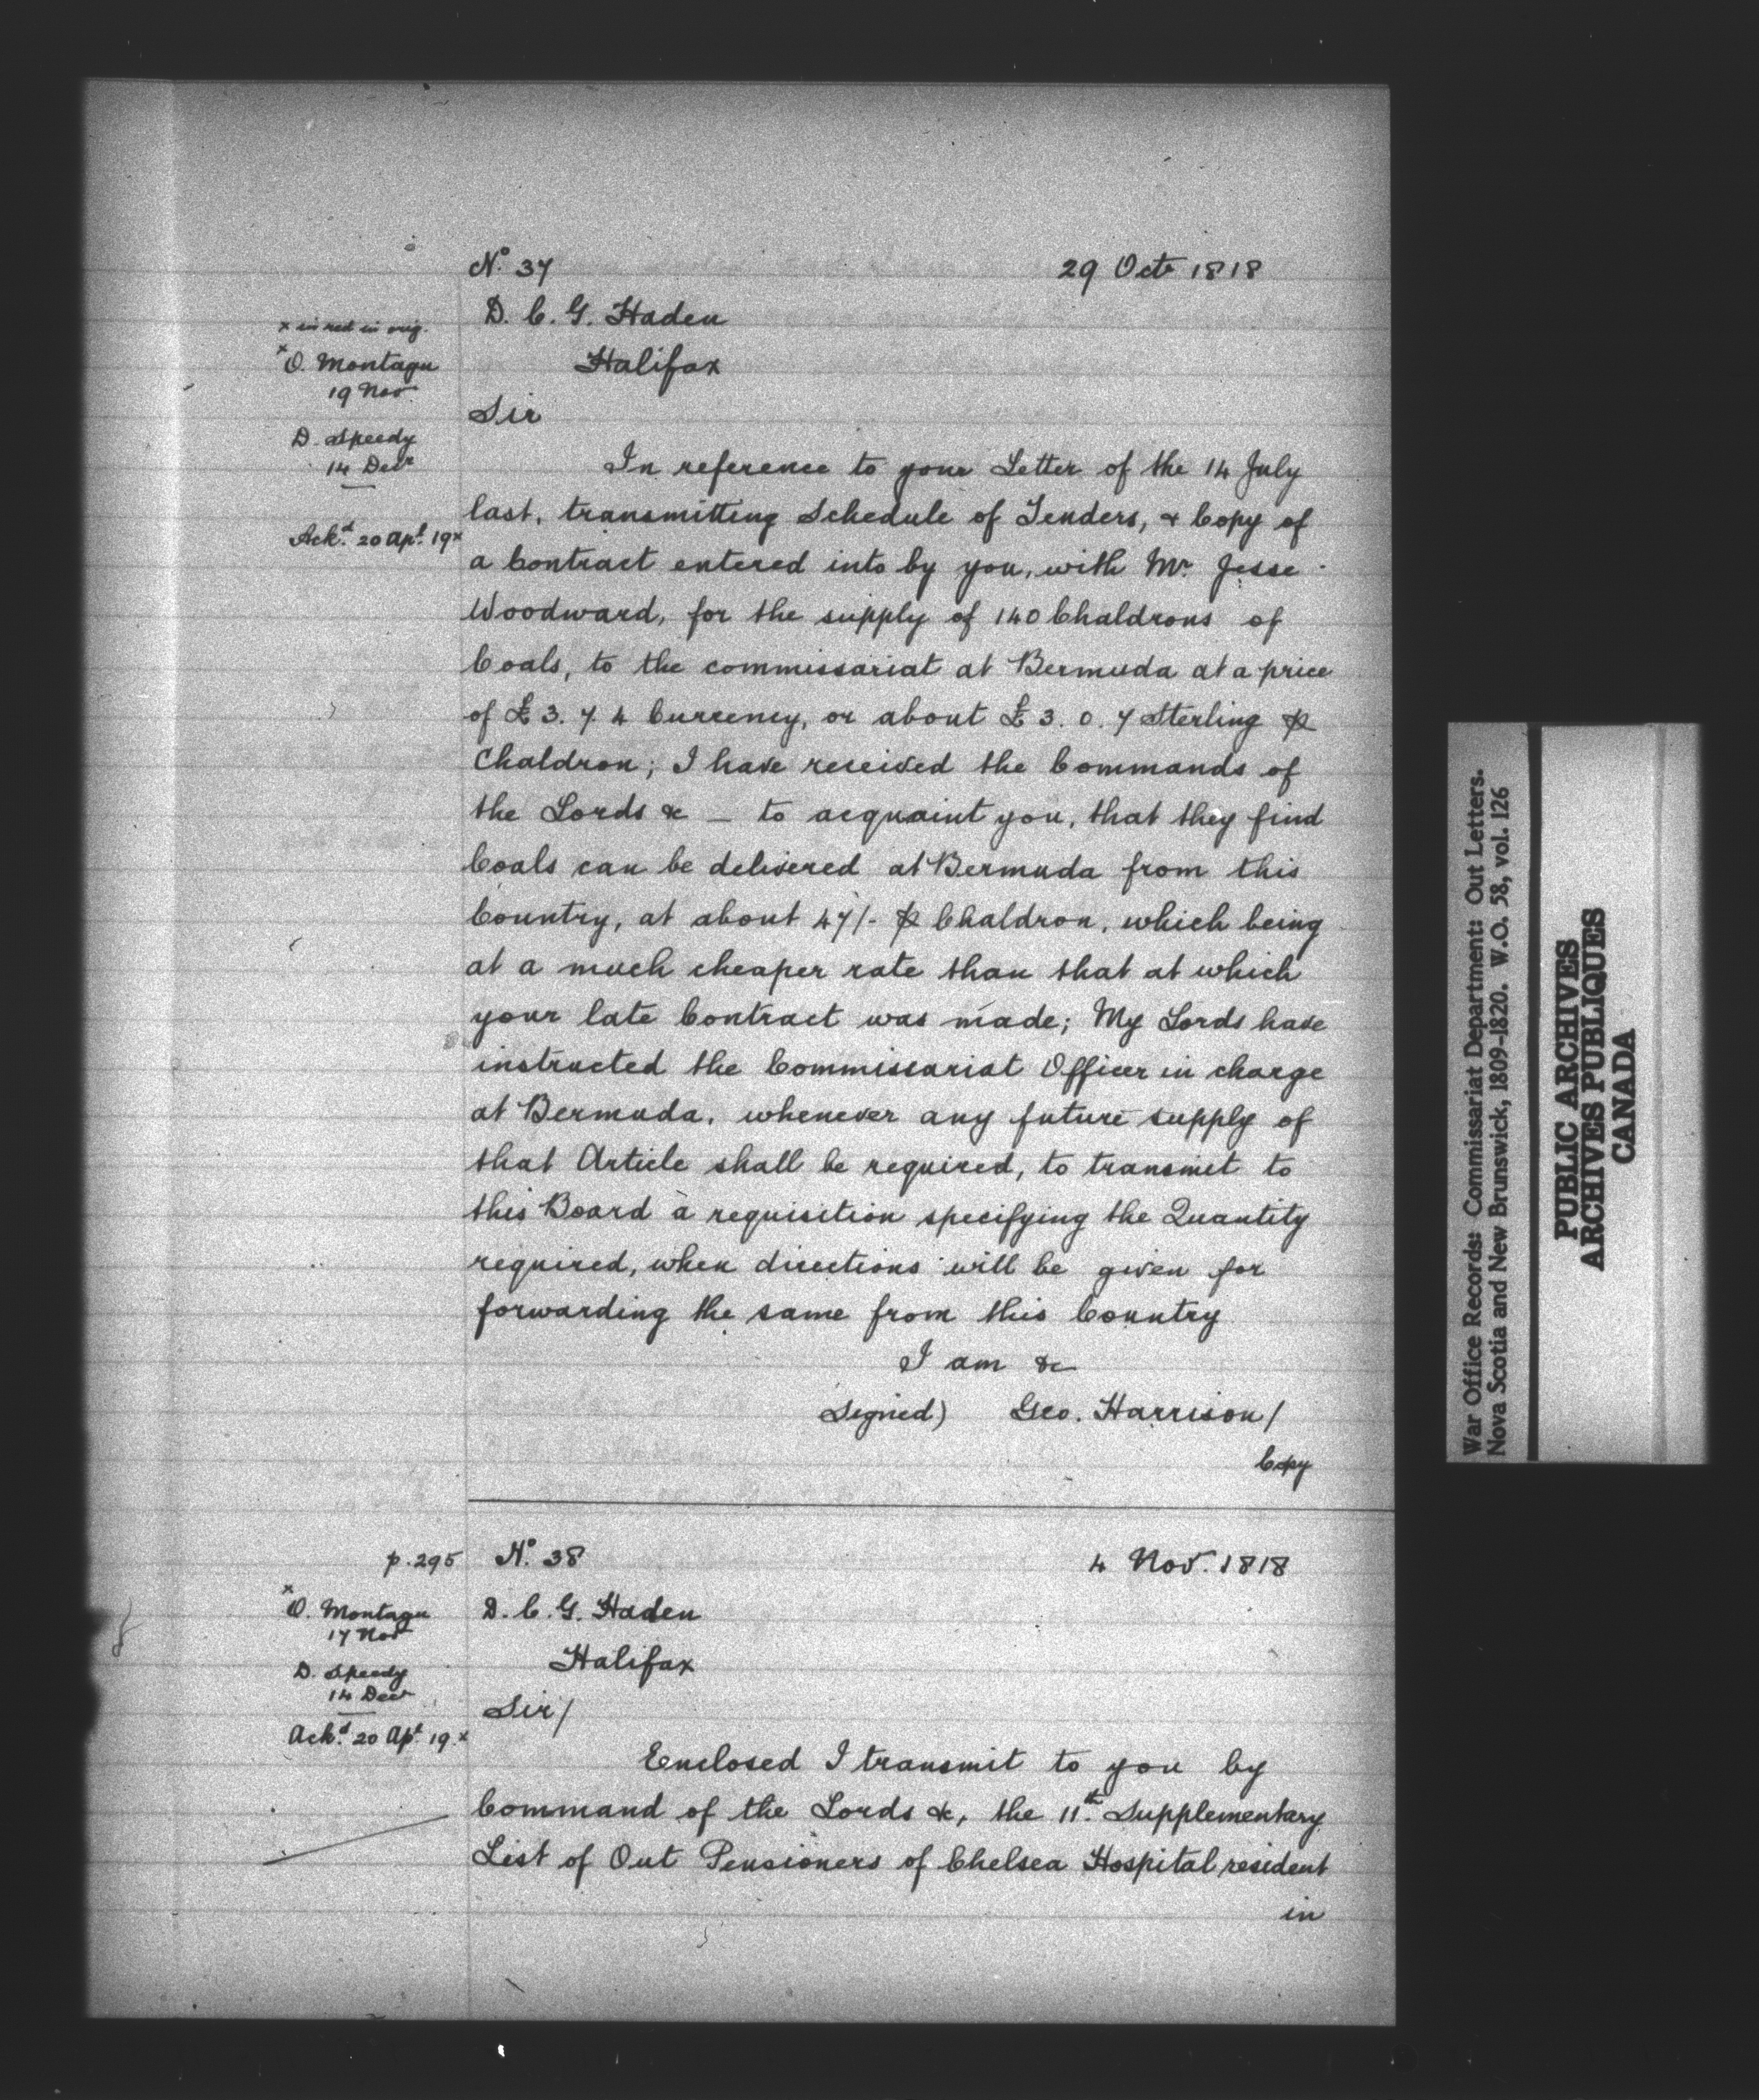 No. 37 29 Octr 1818
D. C. G. Haden
Halifax
Sir
x in red in orig.
x O. Montagu
19 Nov.
D. Speedy
14 Decr
Ackd. 20 Apl. 19x
In reference to your Letter of the 14 July
last, transmitting Schedule of Tenders, & Copy of
a Contract entered into by you, with Mr. Jesse
Woodward, for the supply of 140 Chaldrons of
Coals, to the commissariat at Bermuda at a price
of £3. 7. 4 Currency, or about £3. 0. 7 Sterling ⅌
Chaldron; I have received the Commands of
the Lords &c — to acquaint you, that they find
Coals can be delivered at Bermuda from this
Country, at about 47/- ⅌ Chaldron, which being
at a much cheaper rate than that at which
your late Contract was made; My Lords have
instructed the Commissariat Officer in charge
at Bermuda, whenever any future supply of
that Article shall be required, to transmit to
this Board a requisition specifying the Quantity
required, when directions will be given for
forwarding the same from this Country
I am &c
Signed) Geo. Harrison/
Copy
p. 295 No. 38 4 Nov. 1818
D. C. G. Haden
Halifax
Sir/
x O. Montagu
17 Nov
D. Speedy
14 Decr
Ackd. 20 Apl. 19.x
Enclosed I transmit to you by
Command of the Lords &c, the 11th. Supplementary
List of Out Pensioners of Chelsea Hospital resident
in
War Office Records: Commissariat Department: Out Letters.
Nova Scotia and New Brunswick, 1809-1820. W.O. 58, vol. 126
PUBLIC ARCHIVES
ARCHIVES PUBLIQUES
CANADA